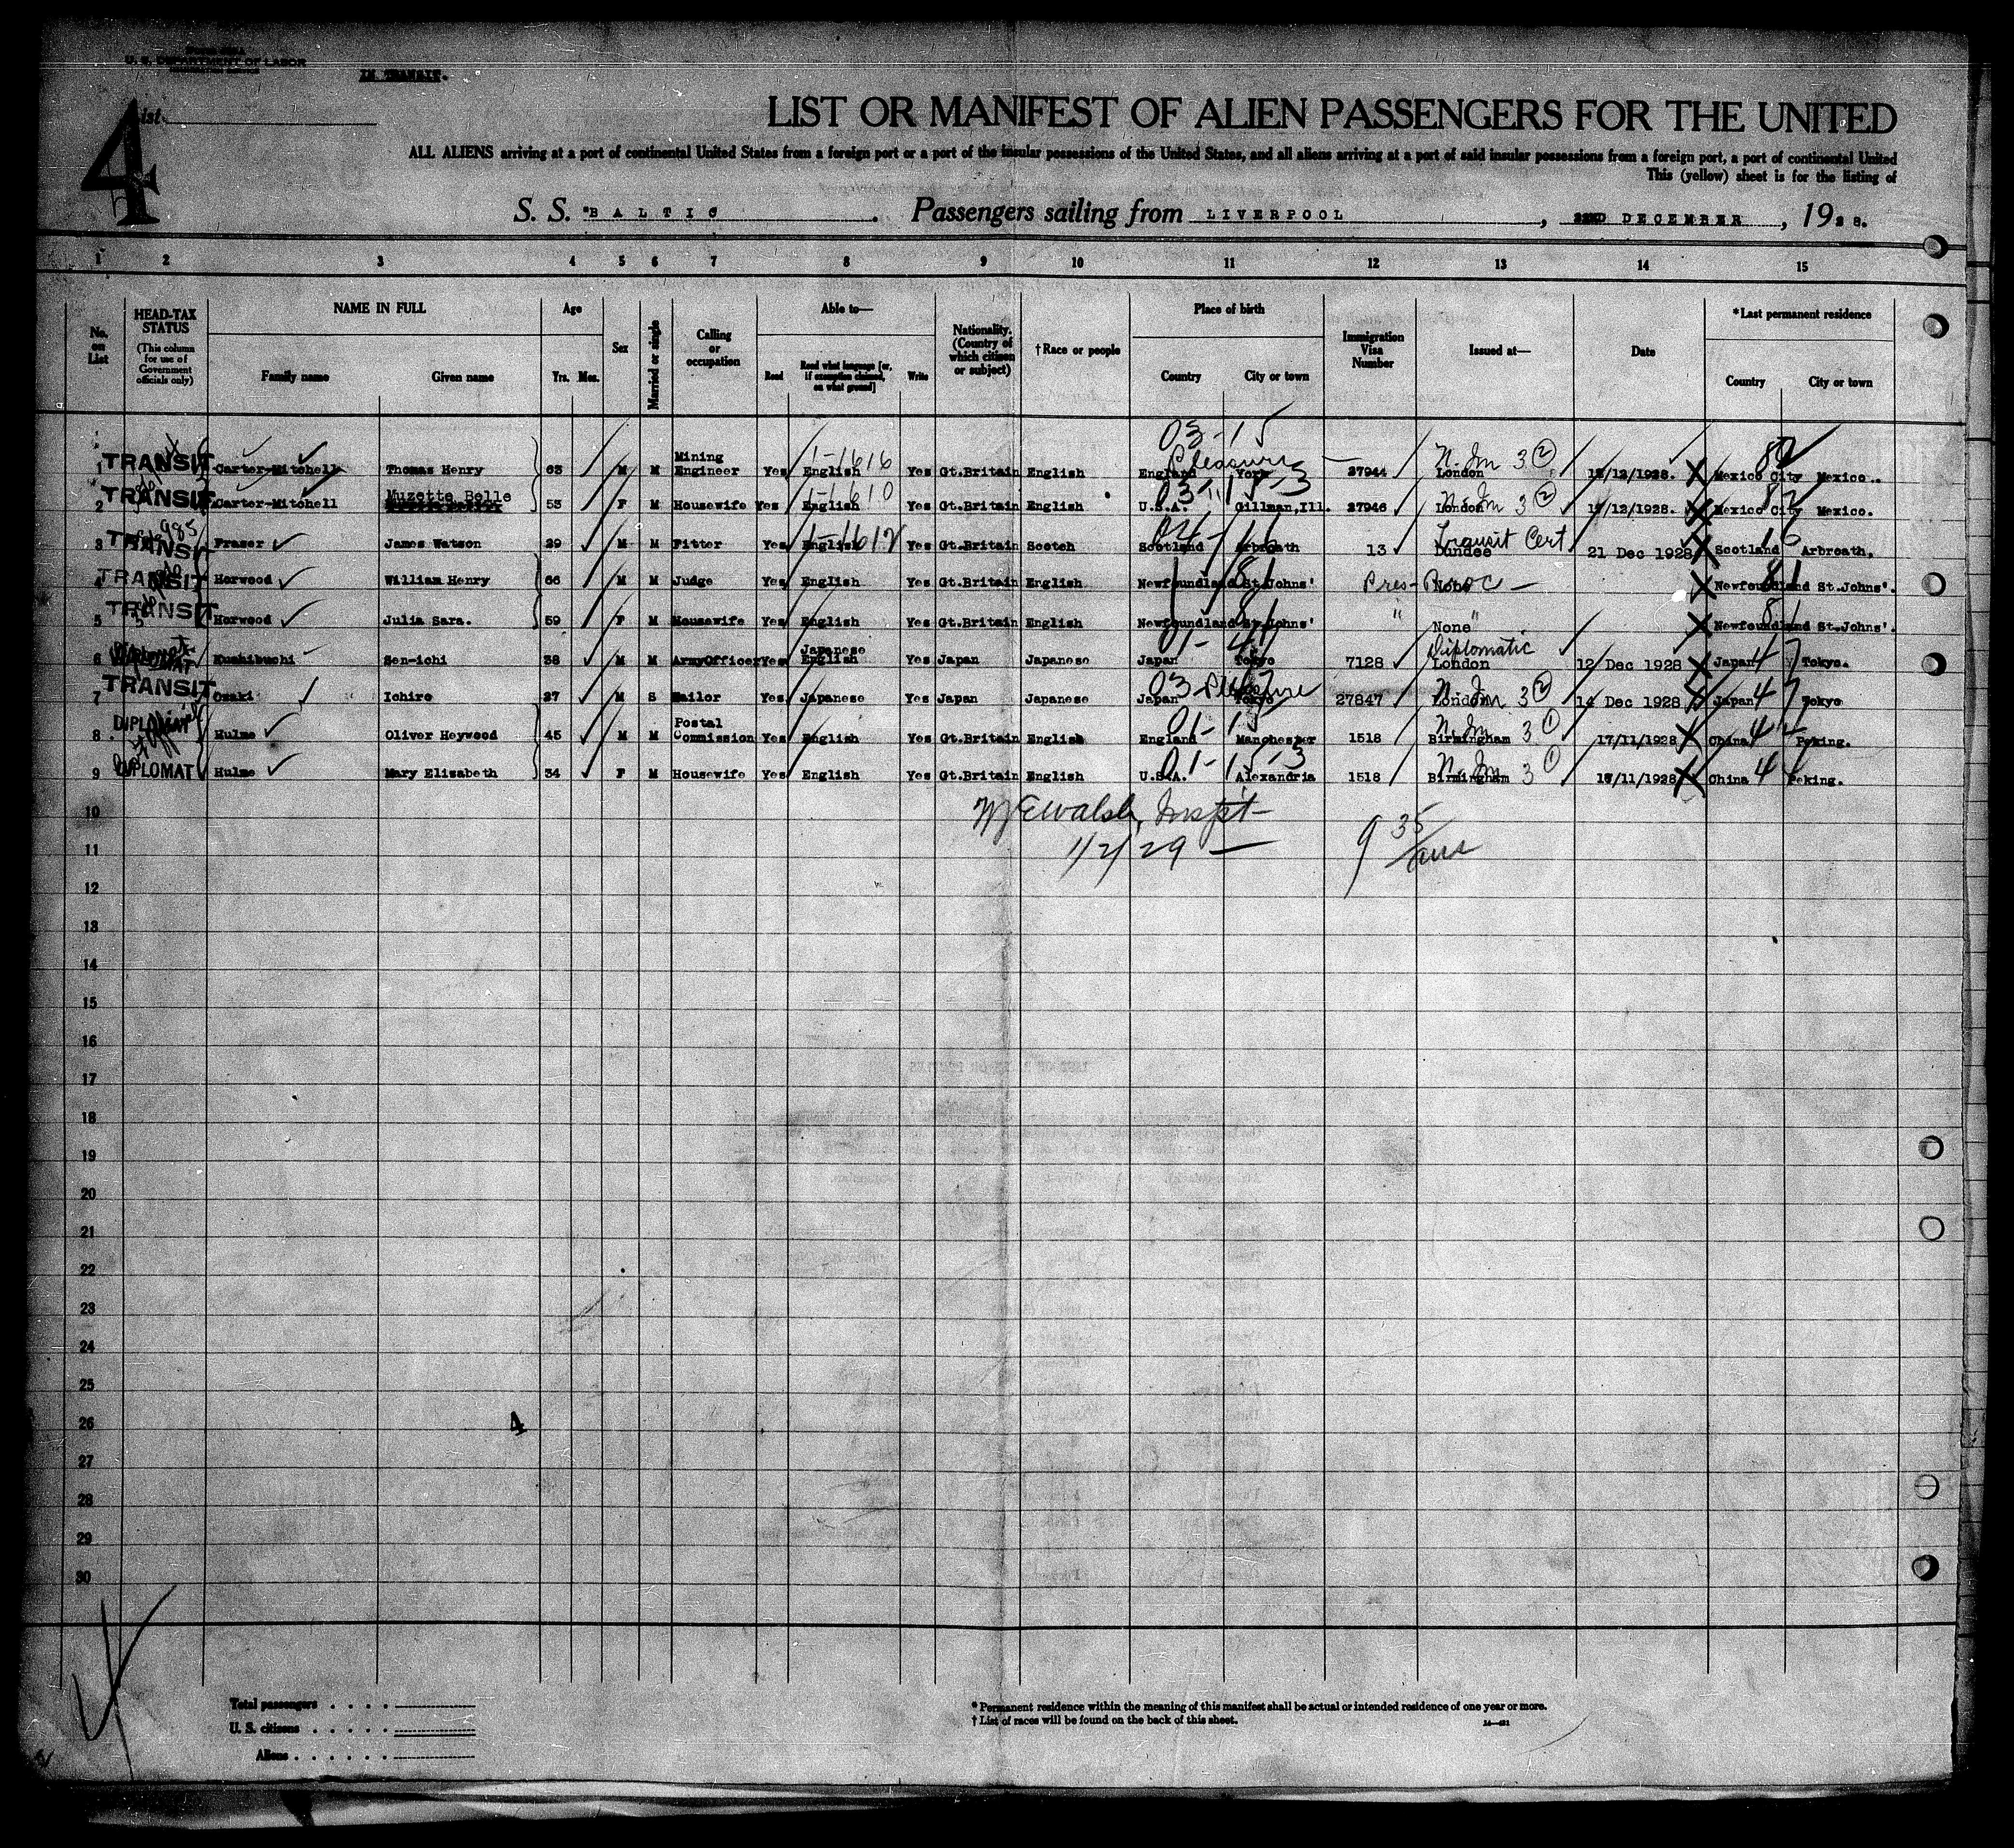 U. S. DEPARTMENT OF LABOR
IN TRANSIT.
List
4
LIST OR MANIFEST OF ALIEN PASSENGERS FOR THE UNITED
ALL ALIENS arriving at a port of continental United States from a foreign port or a port of the insular possessions of the United States, and all aliens arriving at a port of said insular possessions from a foreign port, a port of continental United
This (yellow) sheet is for the listing of
S. S. "BALTIC . Passengers sailing from LIVERPOOL , 22ND DECEMBER , 1928.
1 2 3 4 5 6 7 8 9 10 11 12 13 14 15
No. on List
HEAD-TAX STATUS (This column for use of Government officials only)
NAME IN FULL
Family name Given name
Age
Yrs. Mos.
Sex
Married or single
Calling or occupation
Able to—
Read Read what language [or, if exemption claimed, on what ground] Write
Nationality. (Country of which citizen or subject)
†Race or people
Place of birth
Country City or town
Immigration Visa Number
Issued at—
Date
*Last permanent residence
Country City or town
03-15
1 TRANSIT Carter-Mitchell Thomas Henry 63 M M Mining Engineer Yes 1-1616 English Yes Gt.Britain English England Pleasure York 27944 N. Im 3 (2) London 12/12/1928. Mexico City Mexico. 82
2 TRANSIT Carter-Mitchell Muzette Belle 53 F M Housewife Yes 1-1610 English Yes Gt.Britain English 03-15-3 U.S.A. Gillman,Ill. 27946 N. Im 3 (2) London 12/12/1928. Mexico City Mexico. 82
3 TRANSIT Fraser James Watson 29 M M Fitter Yes English Yes Gt.Britain Scotch 04-16 Scotland Arbroath 13 Transit Cert Dundee 21 Dec 1928 Scotland Arbroath. 16
4 TRANSIT Horwood William Henry 66 M M Judge Yes English Yes Gt.Britain English Newfoundland St.Johns' None Newfoundland St.Johns'. 81
5 TRANSIT Horwood Julia Sara. 59 F M Housewife Yes English Yes Gt.Britain English Newfoundland St.Johns' " None " Newfoundland St.Johns'. 81
6 DIPLOMAT Kushibuchi Sen-ichi 38 M M ArmyOfficer Yes Japanese English Yes Japan Japanese 01-47 Japan Tokyo 7128 Diplomatic London 12 Dec 1928 Japan Tokyo. 47
7 TRANSIT Ozaki Ichiro 27 M S Sailor Yes Japanese Yes Japan Japanese 03 Pleasure Japan Tokyo 27847 N. Im 3 (2) London 14 Dec 1928 Japan Tokyo 47
8 DIPLOMAT Hulme Oliver Heywood 45 M M Postal Commission Yes English Yes Gt.Britain English 01-15 England Manchester 1518 N. Im 3 (1) Birmingham 17/11/1928 China Peking. 44
9 DIPLOMAT Hulme Mary Elisabeth 34 F M Housewife Yes English Yes Gt.Britain English 01-15-3 U.S.A. Alexandria 1518 N. Im 3 (1) Birmingham 17/11/1928 China Peking. 44
10
Walsh, Inspt
11
1/2/29 — 9 35/am
12
13
14
15
16
17
18
19
20
21
22
23
24
25
26
4
27
28
29
30
Total passengers . . . .
U. S. citizens . . . . .
Aliens . . . . . .
* Permanent residence within the meaning of this manifest shall be actual or intended residence of one year or more.
† List of races will be found on the back of this sheet.